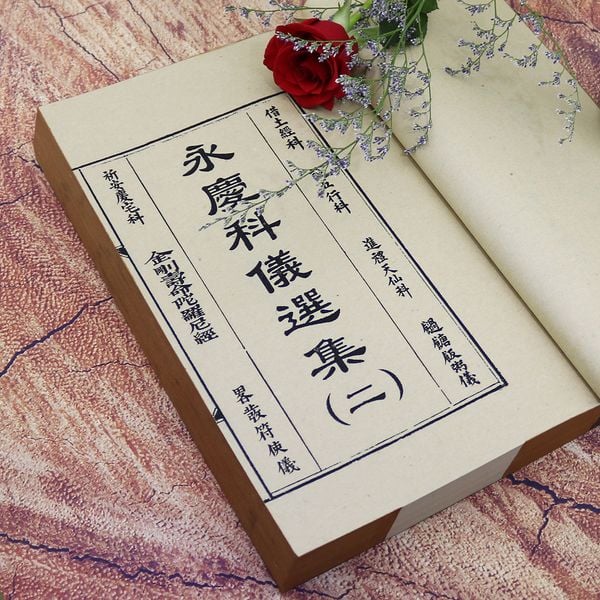 借土經科
五行科
進禮天仙科
飯粥儀
永慶科儀選集(二)
祈安慶宅科
金剛壽命陀羅尼經
畧發符使儀